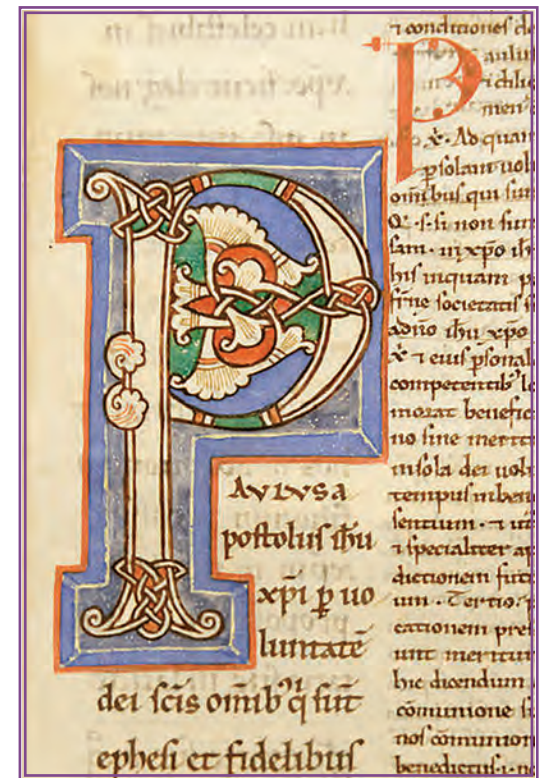 PAVLVSA
postolus ihu
xpi p̱ uo
luntatē
dei scīs omīb' q̇ sūt
ephesi et fidelibus
⁊ conditiones de
Paulus
men
Ad quam
psolam uol
omībus qui sun
Q. s. si non sun
sam. in xpo ih
his inquam p
societatis s
adno ihu xpo
⁊ eius psonal
competentib' le
morat benefic
no sine merit
insola dei uol
tempus inben
sentium. ⁊ ut
⁊ specialiter ap
dictionem
um. Tertio.
cationem pres
unt
hic dicendum
cōmunione
nos cōmunion
benedictus. i. n